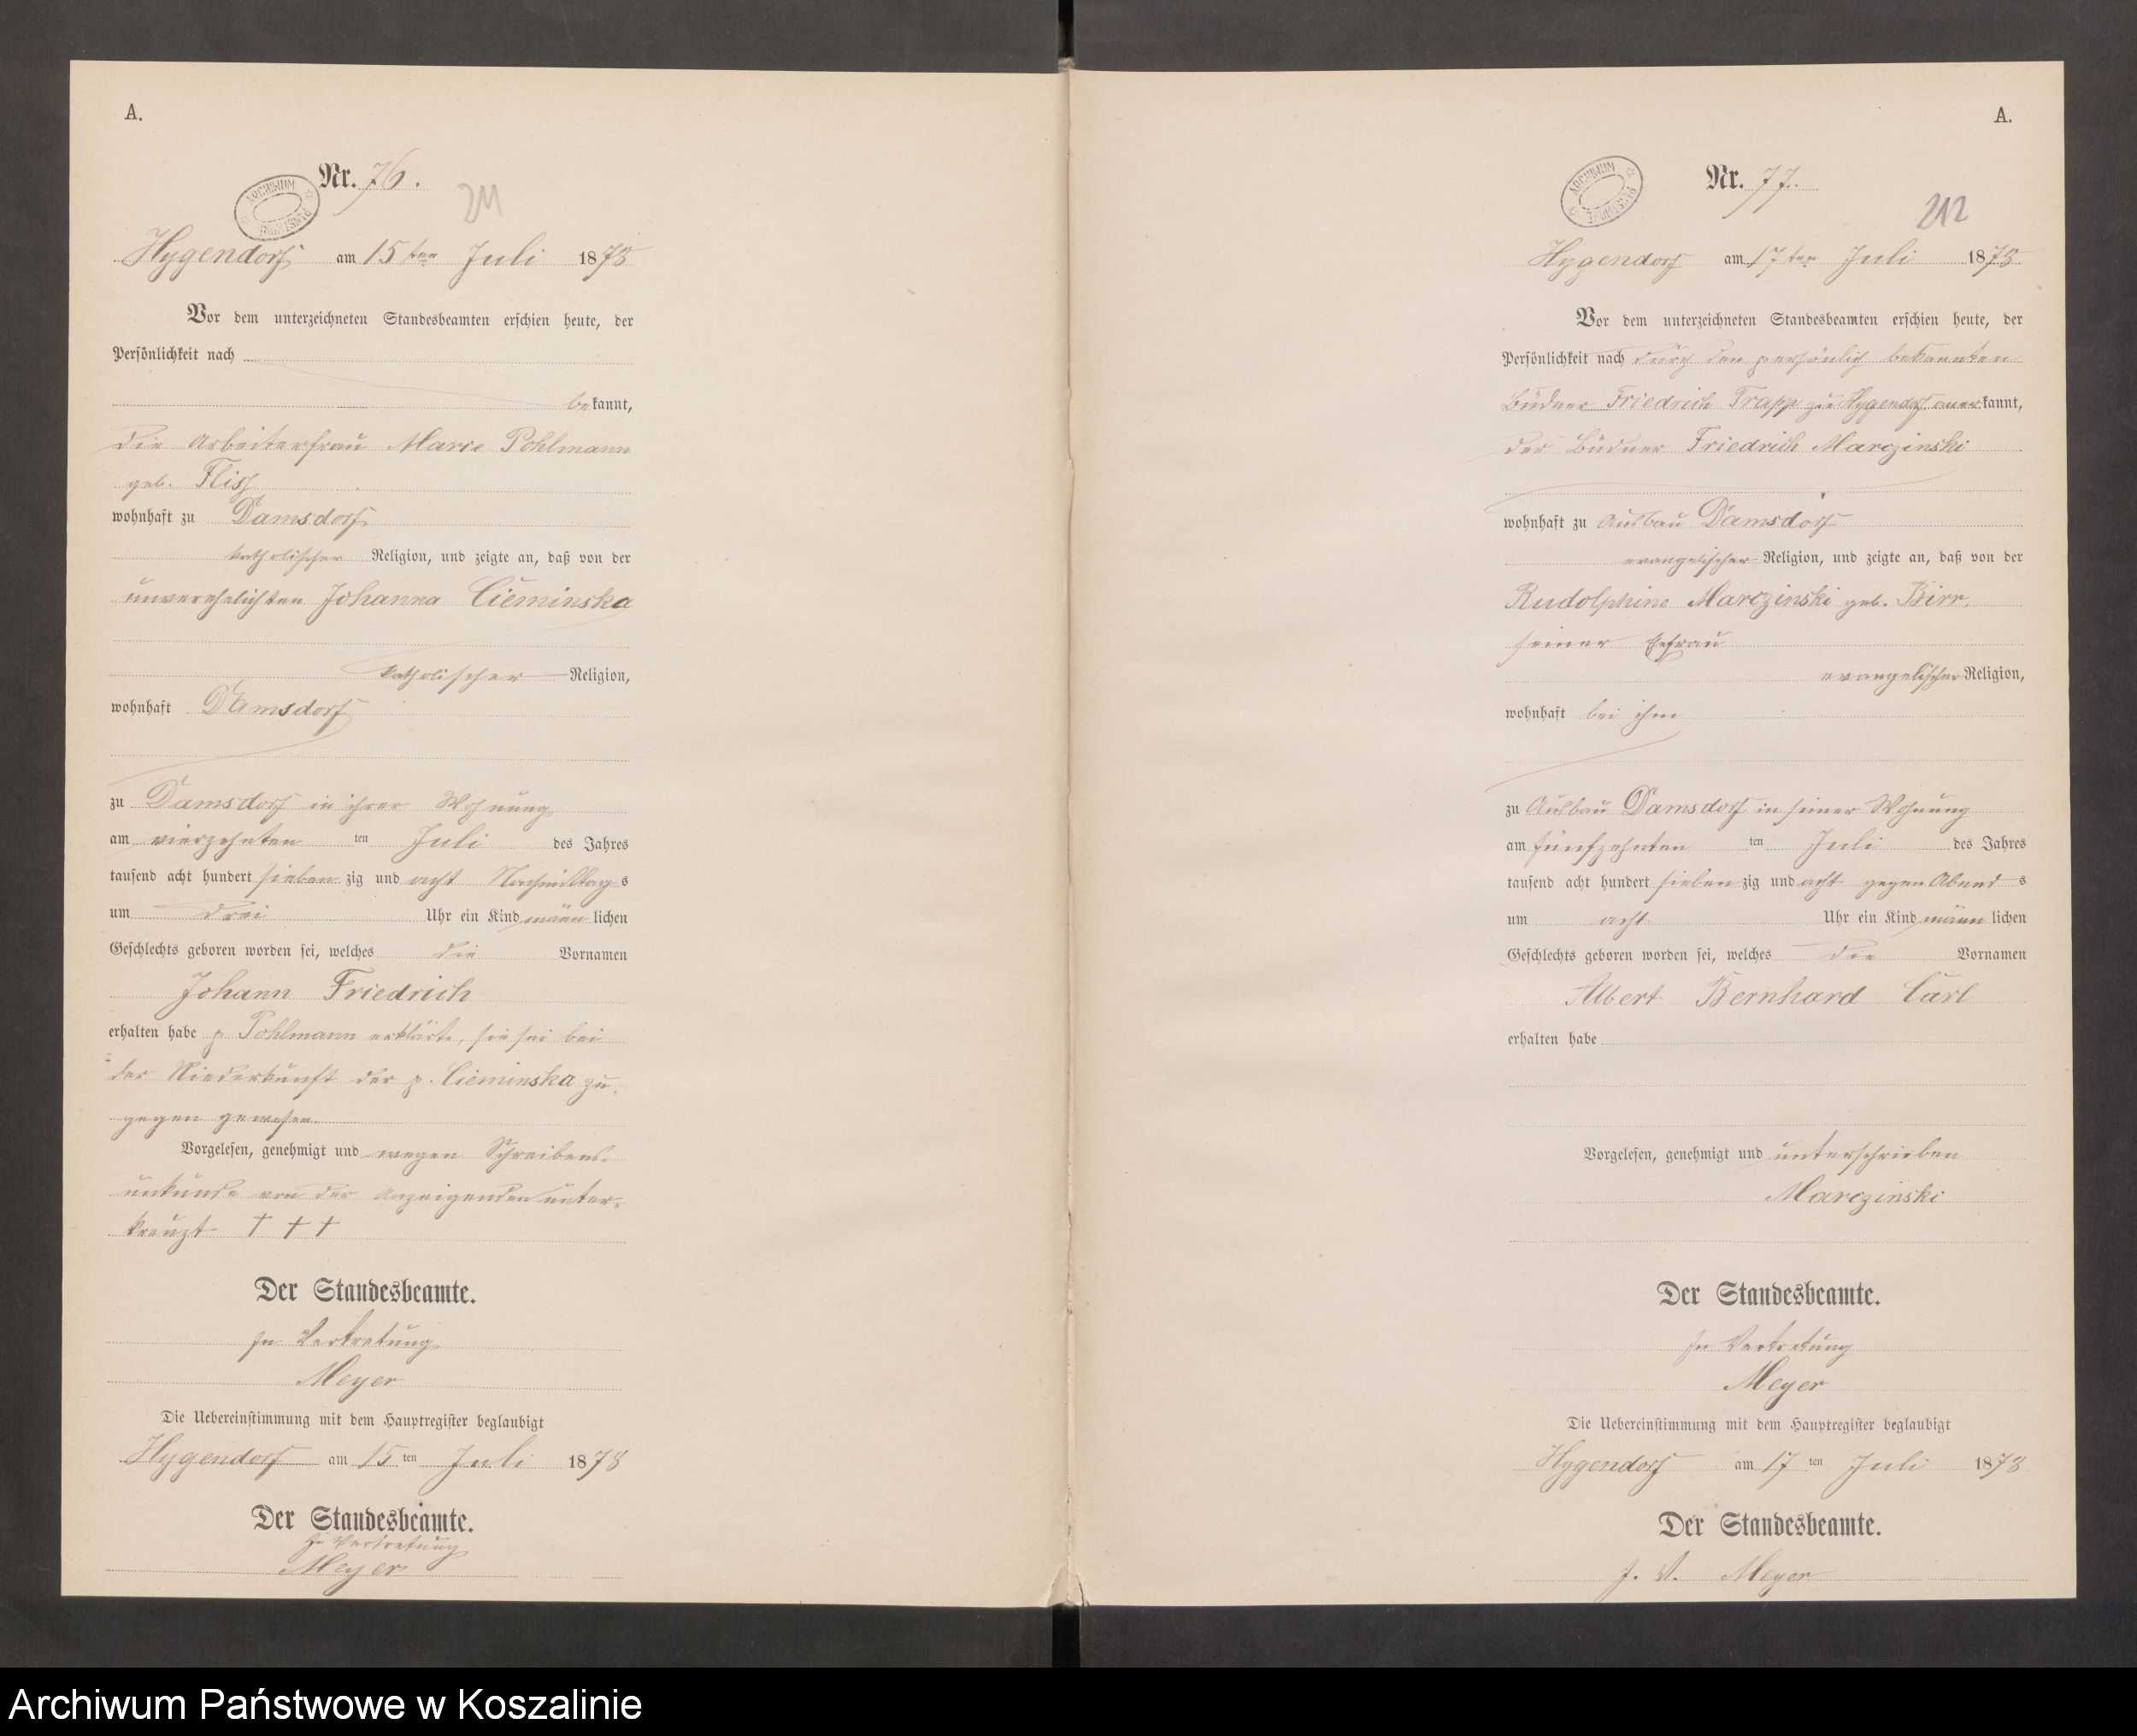 A.
Nr. 76.
211
ARCHIWUM PAŃSTWOWE
Hygendorf am 15ten Juli 1878
Vor dem unterzeichneten Standesbeamten erschien heute, der
Persönlichkeit nach
bekannt,
die Arbeiterfrau Marie Pohlmann
geb. Flisz
wohnhaft zu Damsdorf
katholischer Religion, und zeigte an, daß von der
unverehelichten Johanna Cieminska
katholischer Religion,
wohnhaft Damsdorf
zu Damsdorf in ihrer Wohnung
am vierzehnten ten Juli des Jahres
tausend acht hundert siebenzig und acht Nachmittags
um drei Uhr ein Kind männlichen
Geschlechts geboren worden sei, welches die Vornamen
Johann Friedrich
erhalten habe p Pohlmann erklärte, sie sei bei
der Niederkunft der p. Cieminska zu-
gegen gewesen.
Vorgelesen, genehmigt und wegen Schreibens-
unkunde von der Anzeigenden unter-
kreuzt † † †
Der Standesbeamte.
In Vertretung
Meyer
Die Uebereinstimmung mit dem Hauptregister beglaubigt
Hygendorf am 15ten Juli 1878
Der Standesbeamte.
In Vertretung
Meyer
A.
Nr. 77.
212
ARCHIWUM PAŃSTWOWE
Hygendorf am 17ten Juli 1878
Vor dem unterzeichneten Standesbeamten erschien heute, der
Persönlichkeit nach durch den persönlich bekannten
Büdner Friedrich Trapp zu Hygendorf anerkannt,
der Büdner Friedrich Marczinski
wohnhaft zu Ausbau Damsdorf
evangelischer Religion, und zeigte an, daß von der
Rudolphine Marczinski geb. Birr,
seiner Ehefrau
evangelischer Religion,
wohnhaft bei ihm
zu Ausbau Damsdorf in seiner Wohnung
am fünfzehnten ten Juli des Jahres
tausend acht hundert siebenzig und acht gegen Abend s
um acht Uhr ein Kind männlichen
Geschlechts geboren worden sei, welches die Vornamen
Albert Bernhard Carl
erhalten habe
Vorgelesen, genehmigt und unterschrieben
Marczinski
Der Standesbeamte.
In Vertretung
Meyer
Die Uebereinstimmung mit dem Hauptregister beglaubigt
Hygendorf am 17ten Juli 1878
Der Standesbeamte.
J. V. Meyer
Archiwum Państwowe w Koszalinie